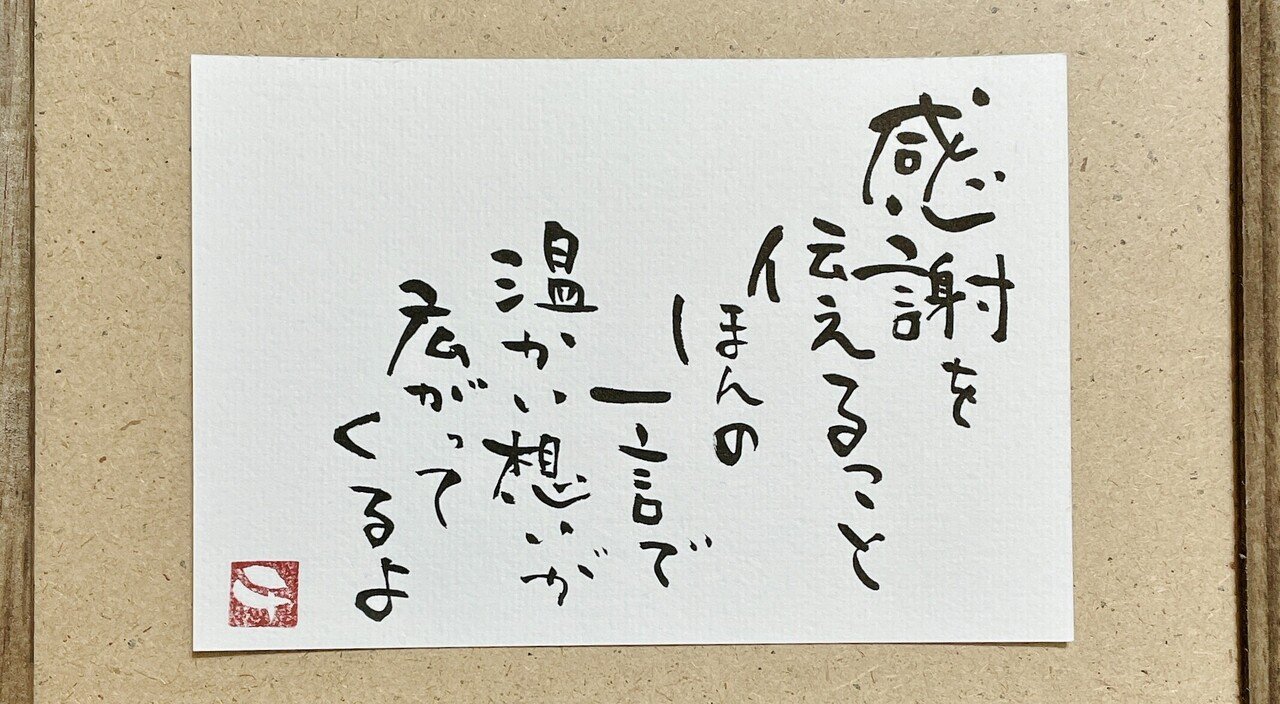 感謝を
伝えること
ほんの
一言で
温かい想いが
広がって
くるよ